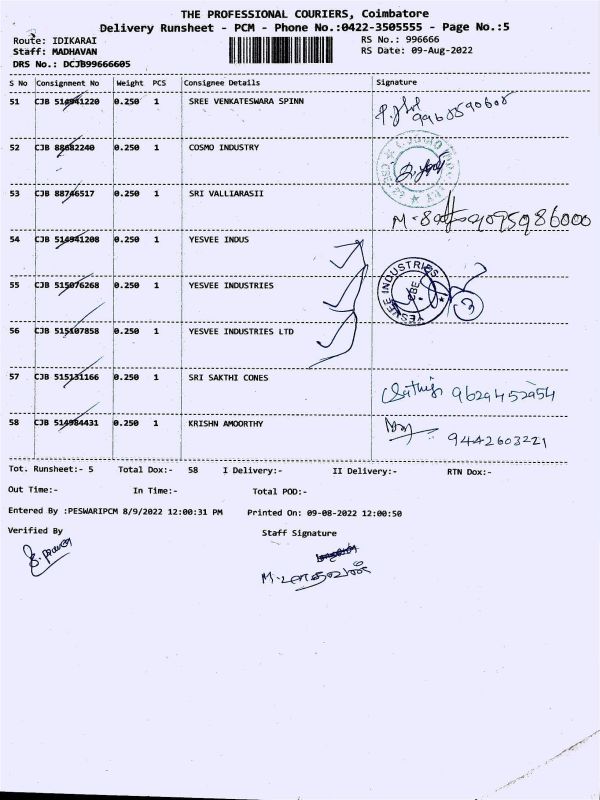 THE PROFESSIONAL COURIERS, Coimbatore
Delivery Runsheet - PCM - Phone No.:0422-3505555 - Page No.:5
Route: IDIKARAI
RS No.: 996666
Staff: MADHAVAN
RS Date: 09-Aug-2022
DRS No.: DCJB99666605
S No Consignment No Weight PCS Consignee Details Signature
51 CJB 514941220 0.250 1 SREE VENKATESWARA SPINN
52 CJB 88682240 0.250 1 COSMO INDUSTRY
53 CJB 88746517 0.250 1 SRI VALLIARASII
54 CJB 514941208 0.250 1 YESVEE INDUS
55 CJB 515076268 0.250 1 YESVEE INDUSTRIES
YESVEE INDUSTRIES CBE
3
56 CJB 515107858 0.250 1 YESVEE INDUSTRIES LTD
57 CJB 515131166 0.250 1 SRI SAKTHI CONES
9629452954
58 CJB 514984431 0.250 1 KRISHN AMOORTHY
9442603221
Tot. Runsheet:- 5 Total Dox:- 58 I Delivery:- II Delivery:- RTN Dox:-
Out Time:- In Time:- Total POD:-
Entered By :PESWARIPCM 8/9/2022 12:00:31 PM Printed On: 09-08-2022 12:00:50
Verified By Staff Signature